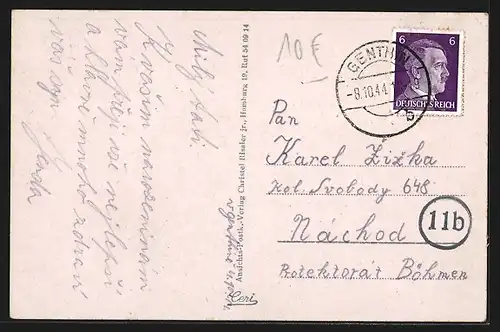 Milý tati.
K vašim narozeninám
vám přeji vše nejlepší
a hlavně mnoho zdraví
váš syn
Jarda
v Genthinu
Ansichts-Postk.-Verlag Christel Rissler jr., Homburg 19, Ruf 54 09 14
Ceri
10 €
GENTHIN
-8.10.44.
b
6 6
DEUTSCHES REICH
Pan
Karel Žižka
Kol. Svobody 648
Náchod
11b
Protektorát Böhmen